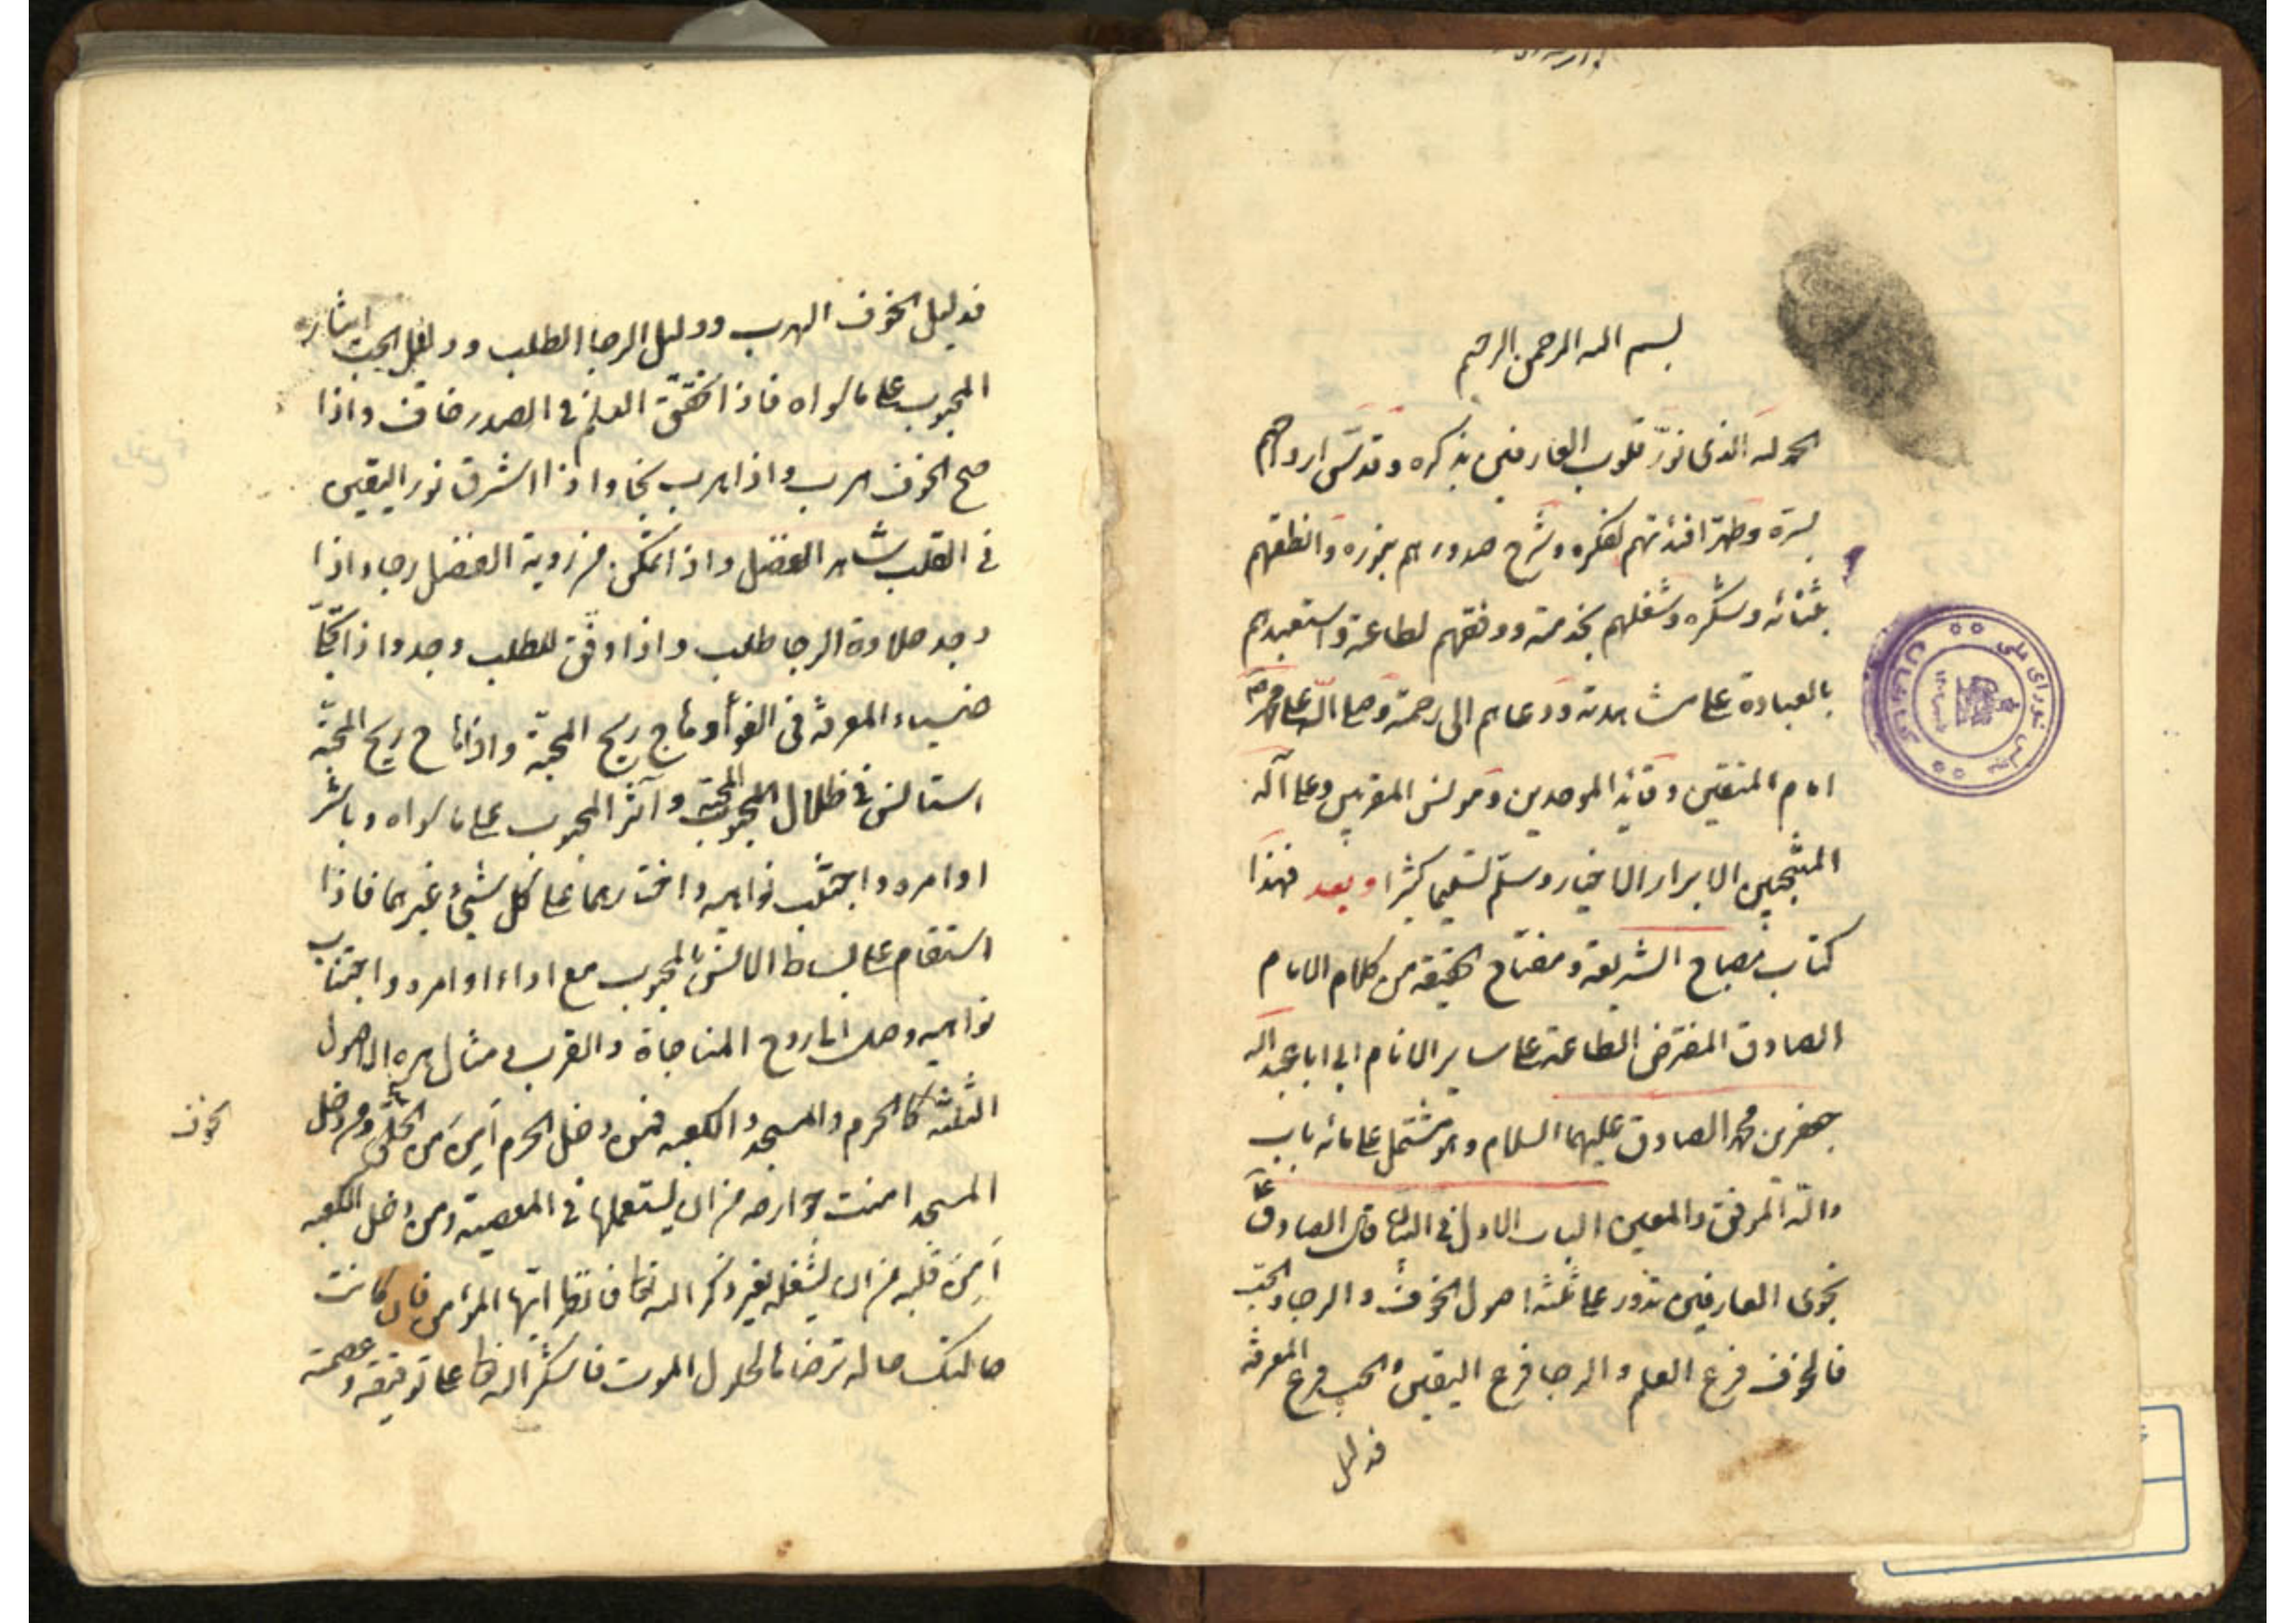 بسم الله الرحمن الرحيم
الحمد لله الذى نوّر قلوب العارفين بذكره وقدّس ارواحهم
بسرّه وطهّر افئدتهم لفكره وشرح صدورهم بنوره وانطقهم
بثنائه وشكره وشغلهم بخدمته ووفقهم لطاعته واستعبدهم
بالعبادة على مشاهدته ودعاهم الى رحمته وصلى الله على محمد
امام المتقين وقائد الموحدين ومونس المقربين وعلى آله
المنتجبين الابرار الاخيار وسلّم تسليما كثيرا وبعد فهذا
كتاب مصباح الشريعة ومفتاح الحقيقة من كلام الامام
الصادق المفترض الطاعة على ساير الانام ابى عبد الله
جعفر بن محمد الصادق عليهما السلام وهو مشتمل على مائه باب
والله الموفق والمعين الباب الاول فى البيان قال الصادق ع
نجوى العارفين تدور على ثلثة اصول الخوف والرجا والحب
فالخوف فرع العلم والرجا فرع اليقين والحب فرع المعرفة
فدليل
فدليل الخوف الهرب ودليل الرجا الطلب ودليل الحب ايثار
المحبوب على ما سواه فاذا تحقق العلم فى الصدر خاف واذا
صح الخوف هرب واذا هرب نجا واذا اشرق نور اليقين
فى القلب شاهد الفضل واذا تمكن من روية الفضل رجا واذا
وجد حلاوة الرجا طلب واذا وفّق للطلب وجد واذا تجلّى
ضياء المعرفة فى الفؤاد هاج ريح المحبة واذا هاج ريح المحبّة
استانس فى ظلال المحبوب وآثر المحبوب على ما سواه وباشر
اوامره واجتنب نواهيه واختارهما على كل شىء غيرهما فاذا
استقام على بساط الانس بالمحبوب مع اداء اوامره واجتناب
نواهيه وصل الى روح المناجاة والقرب ومثال هذه الاصول
الثلثة كالحرم والمسجد والكعبه فمن دخل الحرم اَمِنَ من الخلق ومن دخل
المسجد امنت جوارحه من ان يستعملها فى المعصية ومن دخل الكعبه
اَمِنَ قلبه من ان يشغله بغير ذكر الله تعالى فانظر ايّها المؤمن فان كانت
حالتك حاله ترضاها لحلول الموت فاشكر الله تعالى على توفيقه وعصمته
الخوف